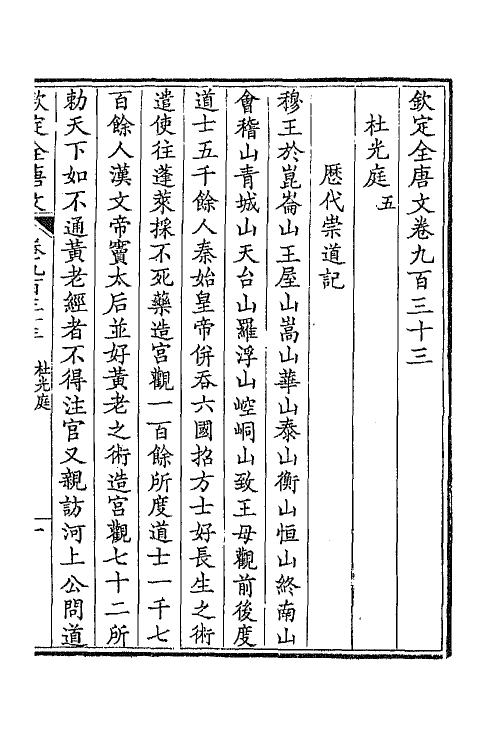 欽定全唐文卷九百三十三
杜光庭五
歷代崇道記
穆王於崑崙山王屋山嵩山華山泰山衡山恒山終南山
會稽山青城山天台山羅浮山崆峒山致王母觀前後度
道士五千餘人秦始皇帝併吞六國招方士好長生之術
遣使往蓬萊採不死藥造宮觀一百餘所度道士一千七
百餘人漢文帝竇太后並好黃老之術造宮觀七十二所
勅天下如不通黃老經者不得注官又親訪河上公問道
欽定全唐文 卷九百三十三 杜光庭 一